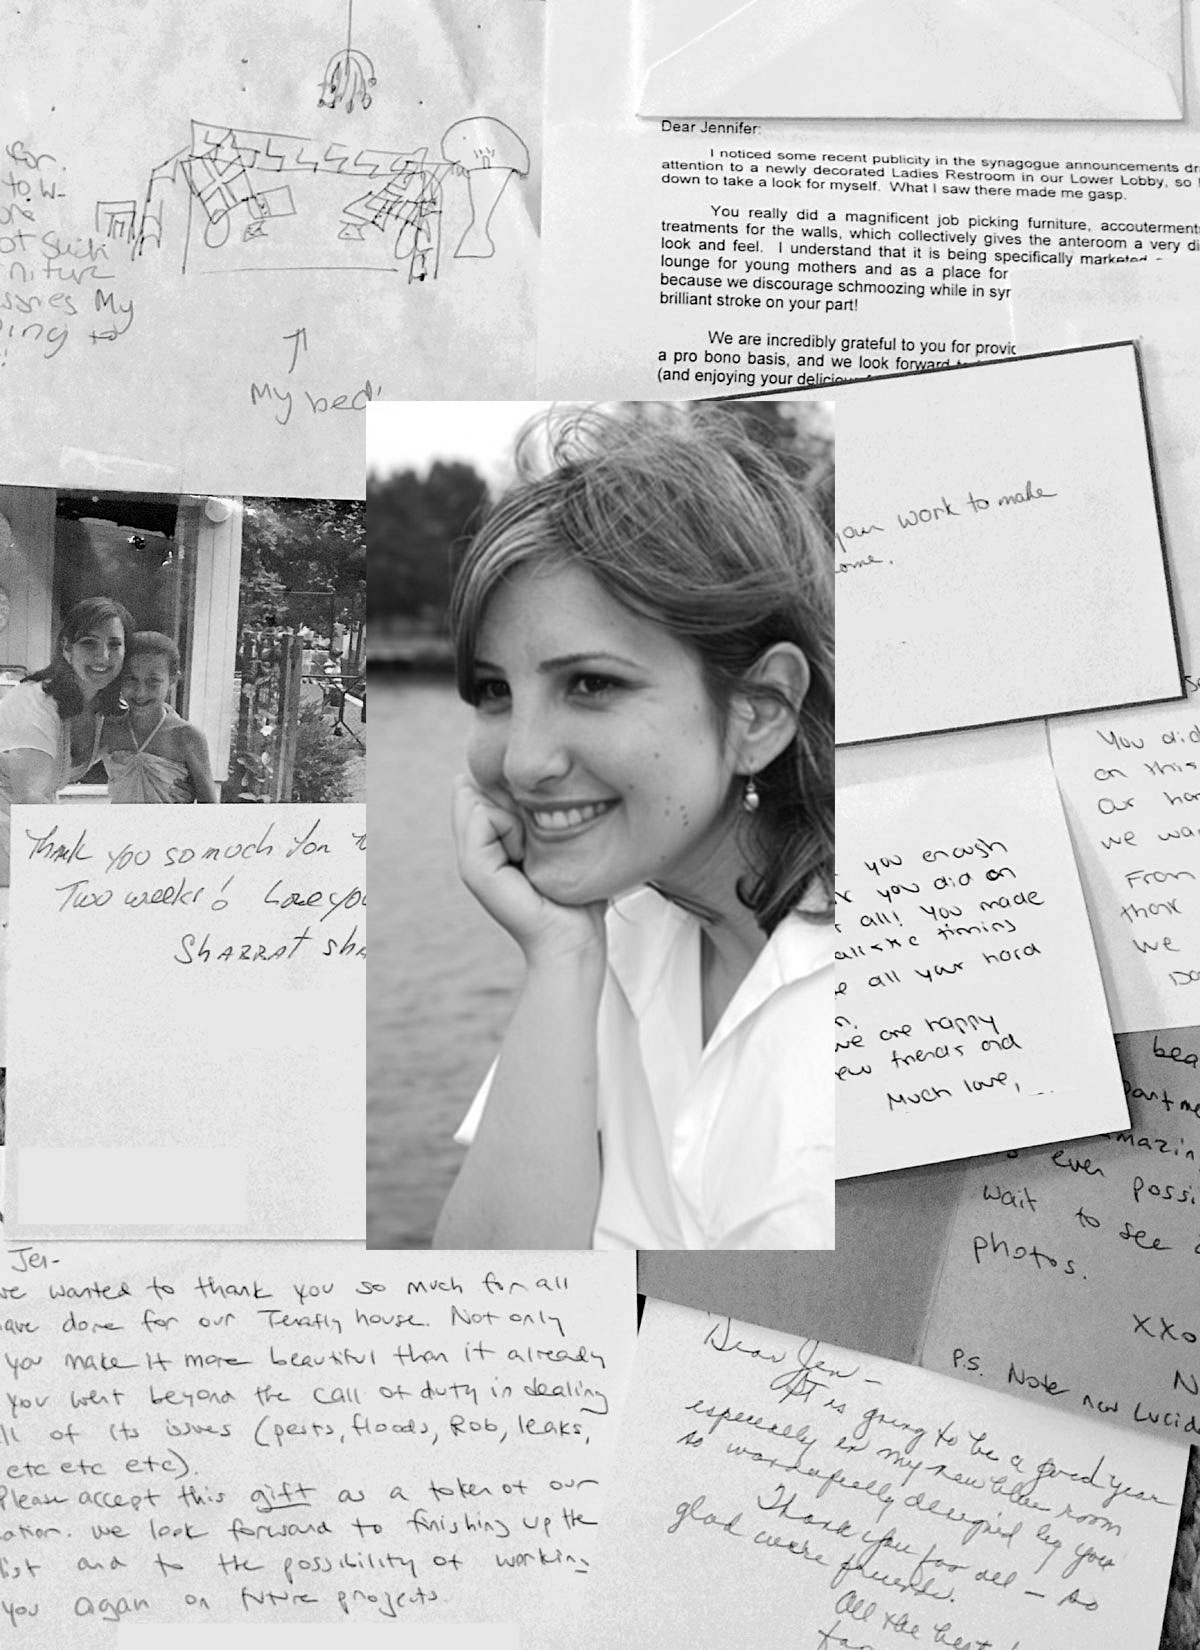 for.
to
not such
niture
ssories My
ping to
My bed!
Dear Jennifer:
I noticed some recent publicity in the synagogue announcements dr
attention to a newly decorated Ladies Restroom in our Lower Lobby, so I
down to take a look for myself. What I saw there made me gasp.
You really did a magnificent job picking furniture, accouterments
treatments for the walls, which collectively gives the anteroom a very di
look and feel. I understand that it is being specifically marketed
lounge for young mothers and as a place for
because we discourage schmoozing while in syr
brilliant stroke on your part!
We are incredibly grateful to you for provic
a pro bono basis, and we look forward
(and enjoying your delicious
your work to make
ome.
Thank you so much for
Two weeks! Love you
SHABBAT sha
you enough
you did on
all! You made
alistic timing
all your hard
n.
we are happy
new friends and
Much love,
You did
on this
Our ho
we wa
From
thank
we
bea
partme
amazin
s even possi
wait to see
photos.
XXO
N
P.S. Note new Lucid
Jen-
we wanted to thank you so much for all
have done for our Tenafly house. Not only
you make it more beautiful than it already
you went beyond the call of duty in dealing
ll of its issues (pests, floods, Rob, leaks,
etc etc etc).
Please accept this gift as a token of our
ation. we look forward to finishing up the
list and to the possibility of working
you again on future projects.
Dear Jen—
It is going to be a good year
especially in my new blue room
so wonderfully designed by you
Thank you for all — so
glad we're friends.
All the best